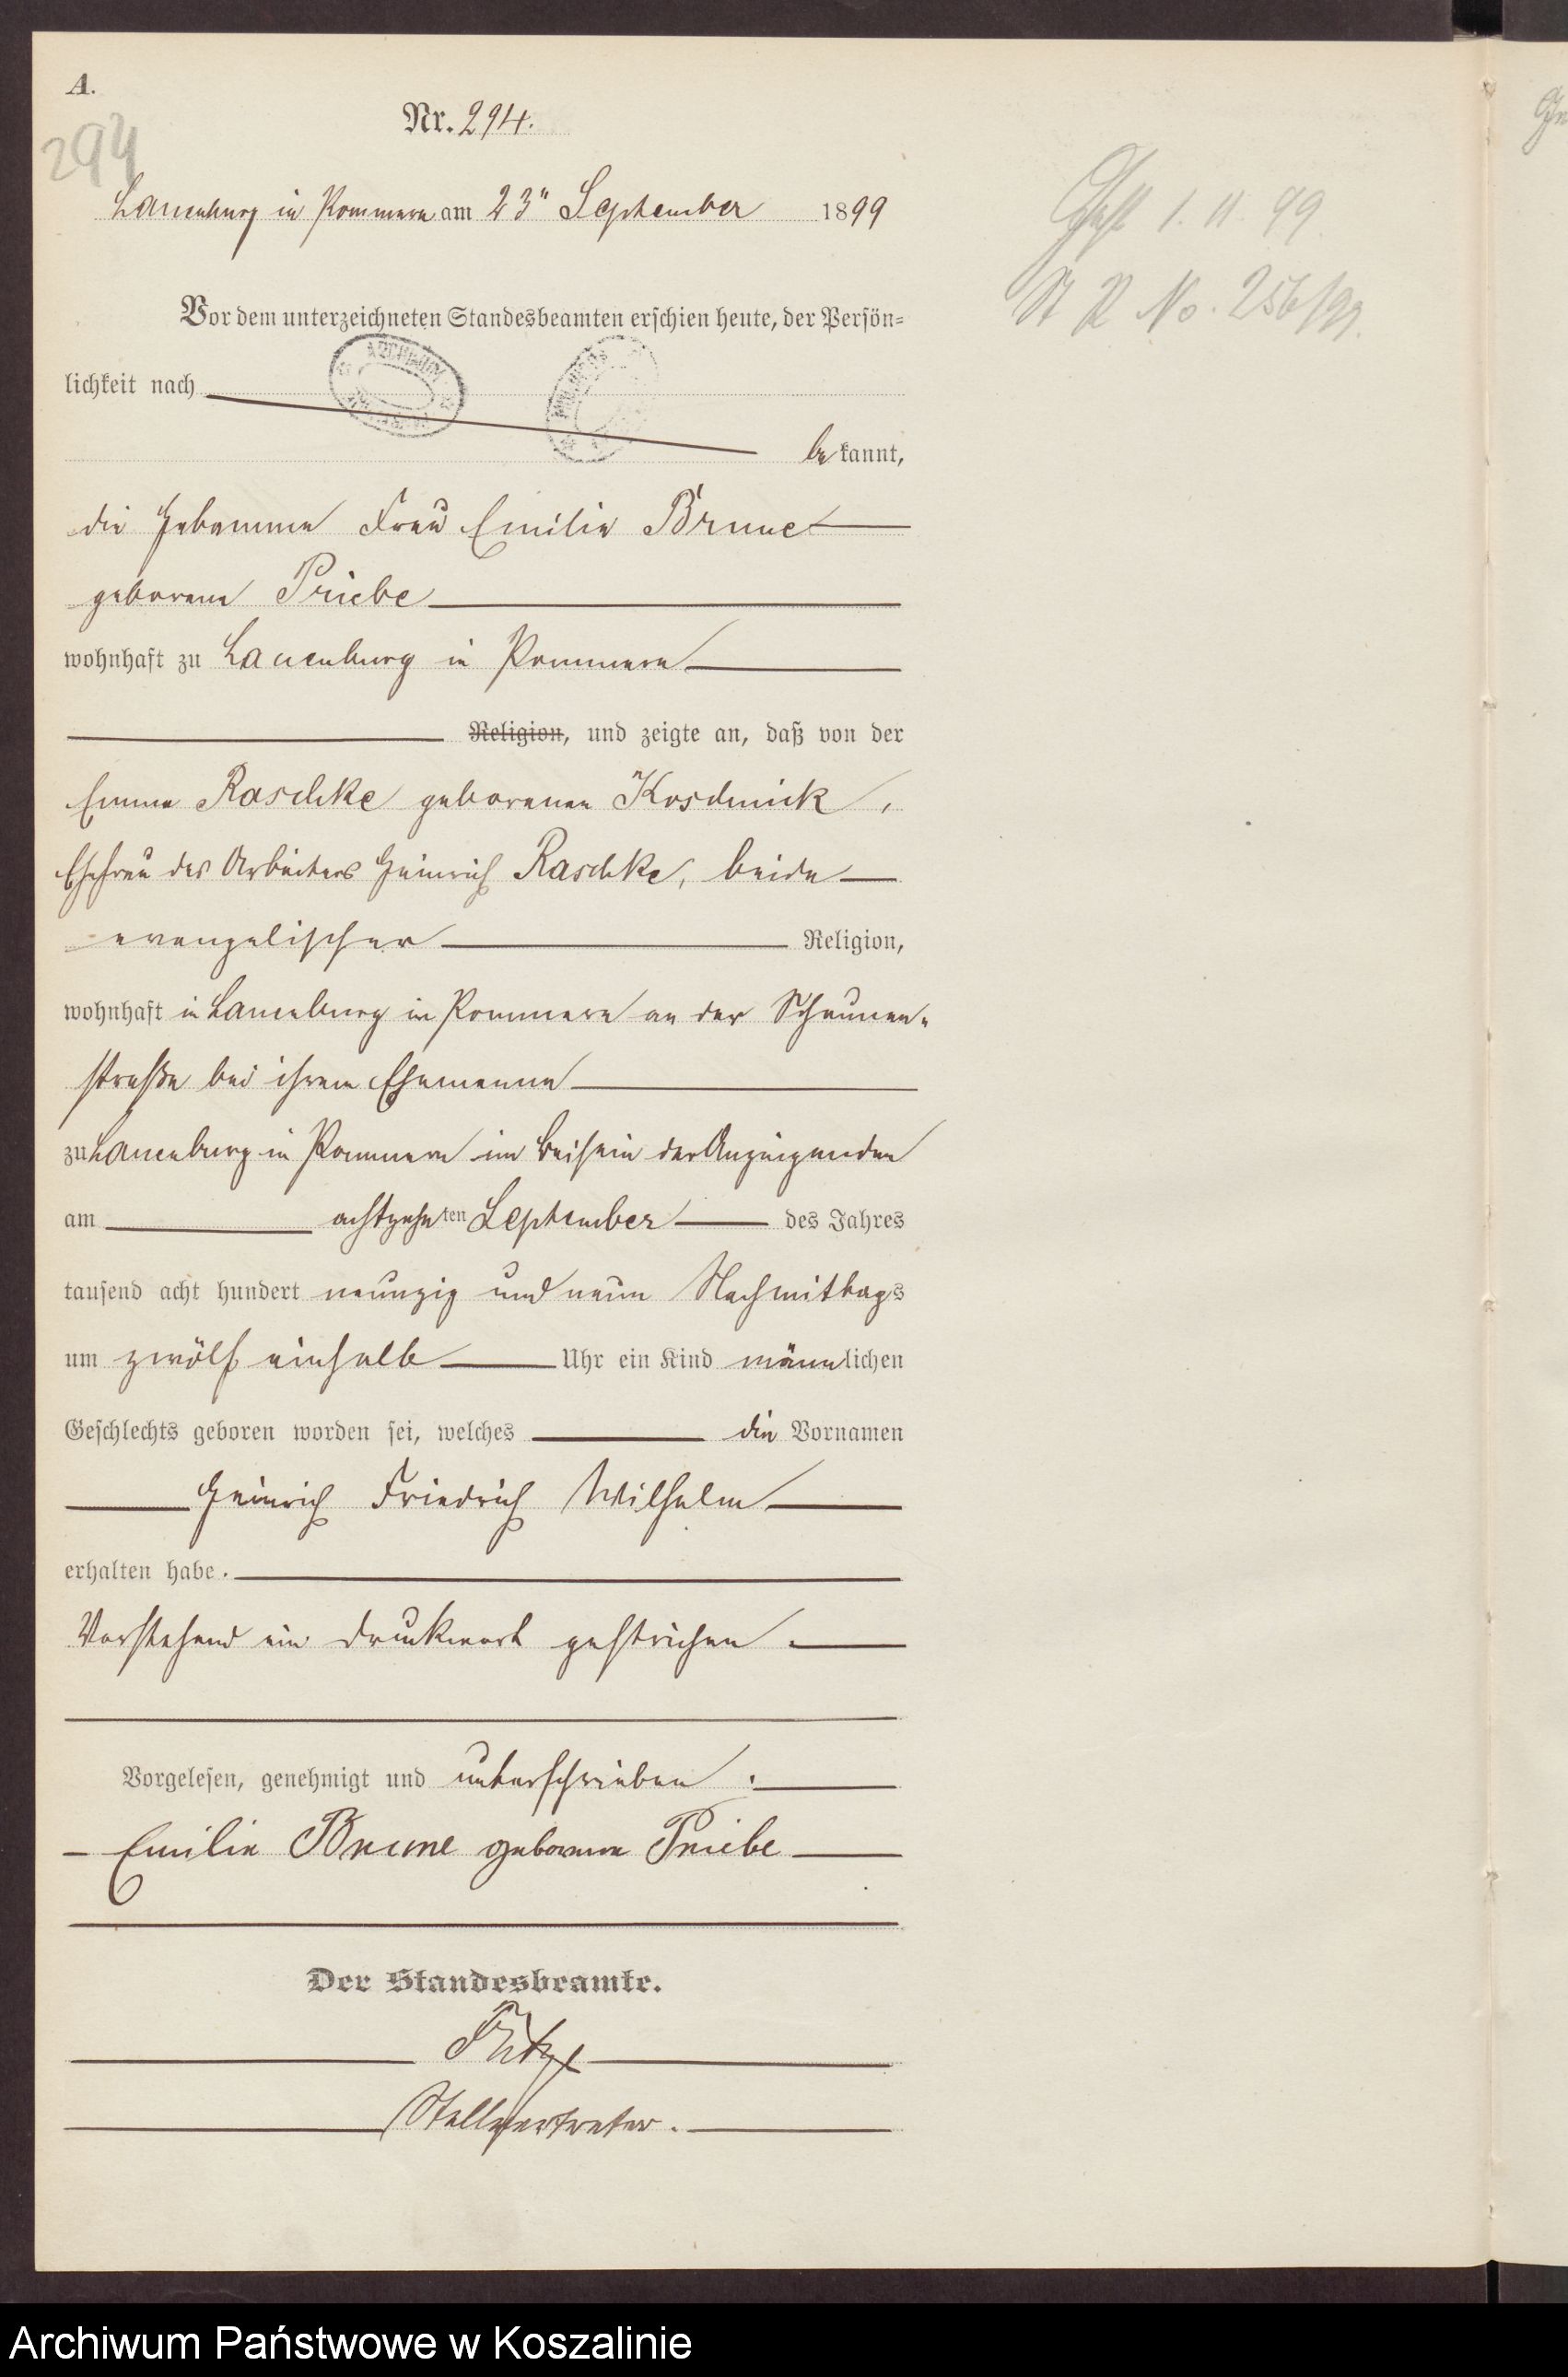 A.
Nr. 294.
294
Lauenburg in Pommern am 23" September 1899
Vor dem unterzeichneten Standesbeamten erschien heute, der Persön-
lichkeit nach
bekannt,
die Hebamme Frau Emilie Brune
geborene Priebe
wohnhaft zu Lauenburg in Pommern
Religion, und zeigte an, daß von der
Emma Raschke geborenen Koschnick,
Ehefrau des Arbeiters Heinrich Raschke, beide
evangelischer Religion,
wohnhaft in Lauenburg in Pommern an der Scheunen-
straße bei ihrem Ehemanne
zu Lauenburg in Pommern im Beisein der Anzeigenden
am achtzehnten September des Jahres
tausend acht hundert neunzig und neun Nachmittags
um zwölf einhalb Uhr ein Kind männlichen
Geschlechts geboren worden sei, welches die Vornamen
Heinrich Friedrich Wilhelm
erhalten habe.
Vorstehend ein Druckwort gestrichen.
Vorgelesen, genehmigt und unterschrieben.
Emilie Brune geborene Priebe
Der Standesbeamte.
Stellvertreter.
1. 11. 99.
No. 256/99.
Archiwum Państwowe w Koszalinie